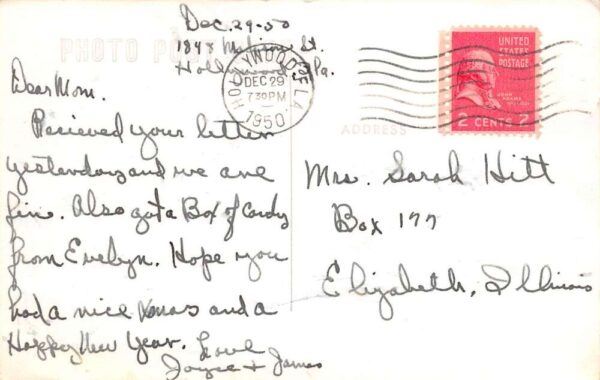 Dec. 29-50
1848 St.
Holl Fla.
PHOTO PO
HOLLYWOOD FLA.
DEC 29
7 30 PM
1950
UNITED
STATES
POSTAGE
JOHN
ADAMS
2 CENTS 2
ADDRESS
Dear Mom.
Recieved your letter
yesterday and we are
fin. Also got a Box of Candy
from Evelyn. Hope you
had a nice Xmas and a
Happy New Year. Love
Joyce + James
Mrs. Sarah Hitt
Box 177
Elizabeth, Illinois